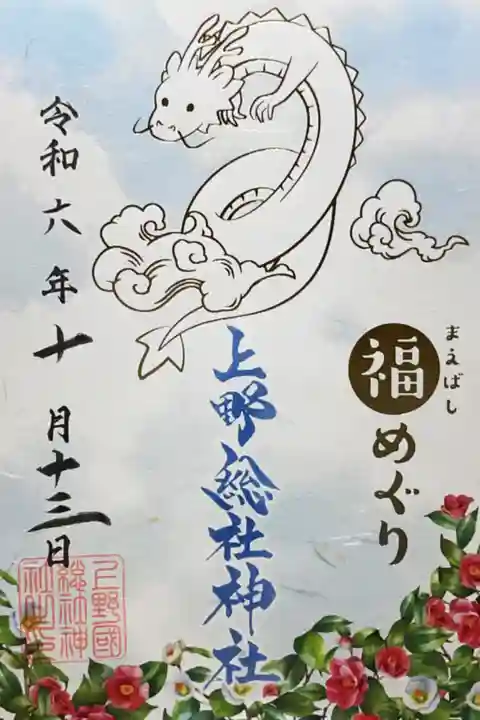 まえばし
福めぐり
上野総社神社
令和六年十月十三日
上野國
総社神
社之印